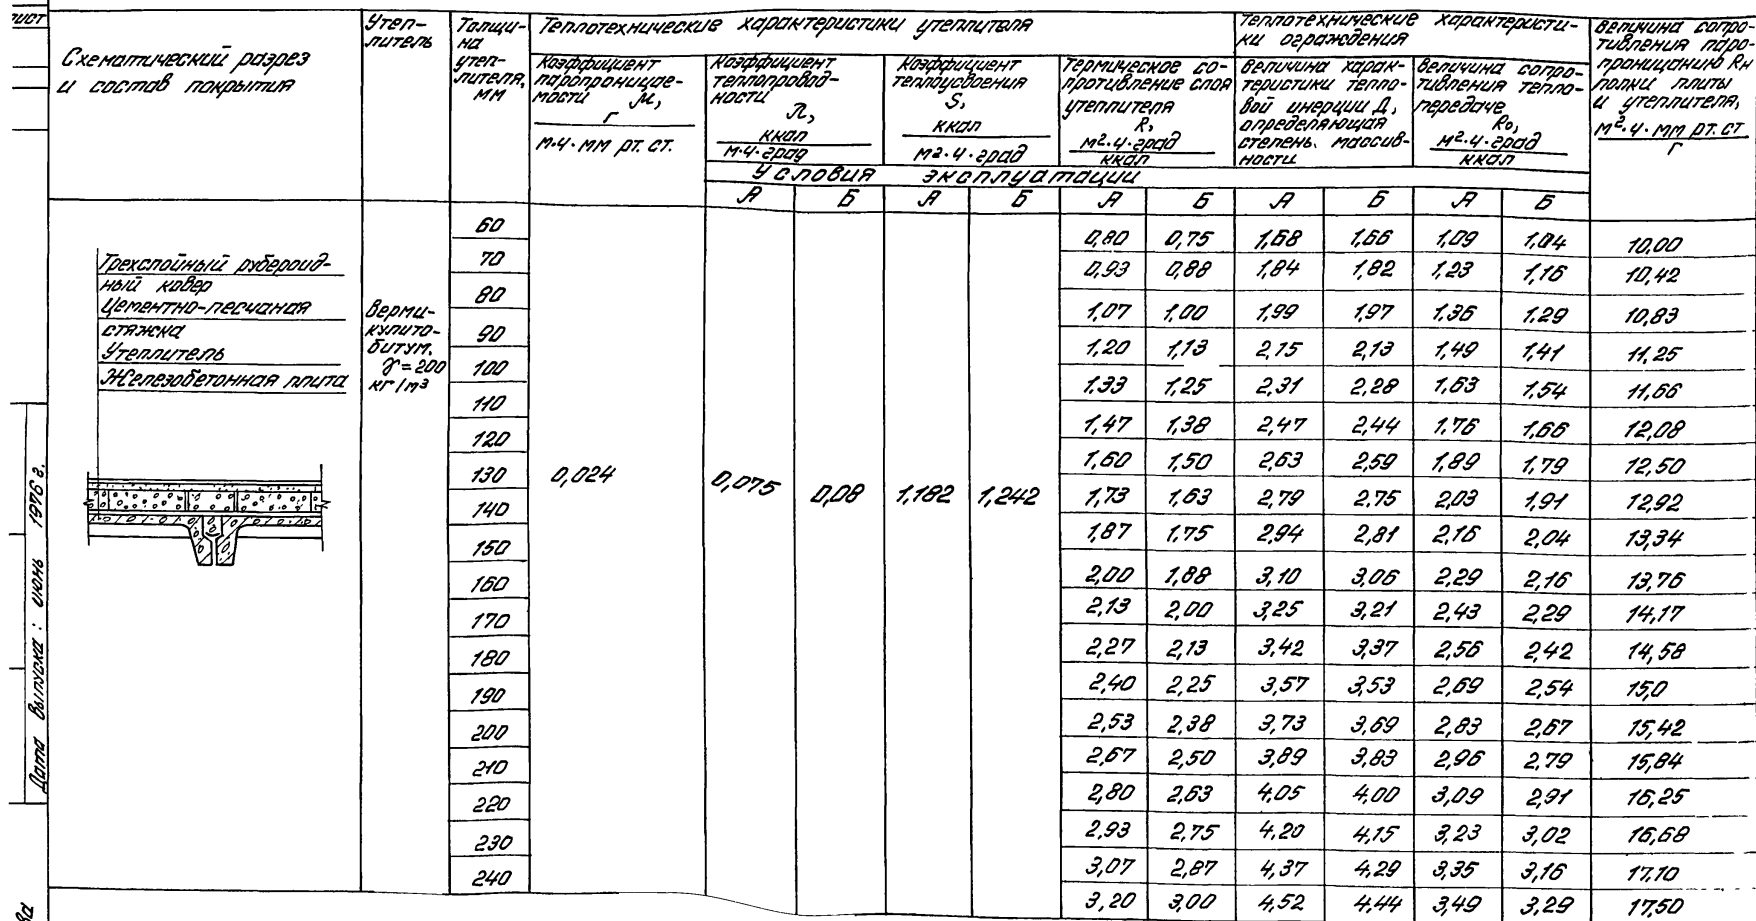 лист
Схематический разрез
и состав покрытия
Утеп-
литель
Толщи-
на
утеп-
лителя,
мм
Теплотехнические характеристики утеплителя
Коэффициент
паропроницае-
мости μ,
г
м·ч·мм рт. ст.
Коэффициент
теплопровод-
ности
λ,
ккал
м·ч·град
Коэффициент
теплоусвоения
S,
ккал
м²·ч·град
Термическое со-
противление слоя
утеплителя
R,
м²·ч·град
ккал
Теплотехнические характеристи-
ки ограждения
Величина харак-
теристики тепло-
вой инерции Д,
определяющая
степень массив-
ности
Величина сопро-
тивления тепло-
передаче
Rо,
м²·ч·град
ккал
Величина сопро-
тивления паро-
проницанию Rн
полки плиты
и утеплителя,
м²·ч·мм рт. ст
г
Условия эксплуатации
А Б А Б А Б А Б А Б
Трехслойный рубероид-
ный ковер
Цементно-песчаная
стяжка
Утеплитель
Железобетонная плита
Верми-
кулито-
битум,
γ=200
кг/м³
0,024
0,075 0,08 1,182 1,242
60 0,80 0,75 1,68 1,66 1,09 1,04 10,00
70 0,93 0,88 1,84 1,82 1,23 1,16 10,42
80 1,07 1,00 1,99 1,97 1,36 1,29 10,83
90 1,20 1,13 2,15 2,13 1,49 1,41 11,25
100 1,33 1,25 2,31 2,28 1,63 1,54 11,66
110 1,47 1,38 2,47 2,44 1,76 1,66 12,08
120 1,60 1,50 2,63 2,59 1,89 1,79 12,50
130 1,73 1,63 2,79 2,75 2,03 1,91 12,92
140 1,87 1,75 2,94 2,81 2,16 2,04 13,34
150 2,00 1,88 3,10 3,06 2,29 2,16 13,76
160 2,13 2,00 3,25 3,21 2,43 2,29 14,17
170 2,27 2,13 3,42 3,37 2,56 2,42 14,58
180 2,40 2,25 3,57 3,53 2,69 2,54 15,0
190 2,53 2,38 3,73 3,69 2,83 2,67 15,42
200 2,67 2,50 3,89 3,83 2,96 2,79 15,84
210 2,80 2,63 4,05 4,00 3,09 2,91 16,25
220 2,93 2,75 4,20 4,15 3,23 3,02 16,68
230 3,07 2,87 4,37 4,29 3,35 3,16 17,10
240 3,20 3,00 4,52 4,44 3,49 3,29 17,50
Дата выпуска: июнь 1976 г.